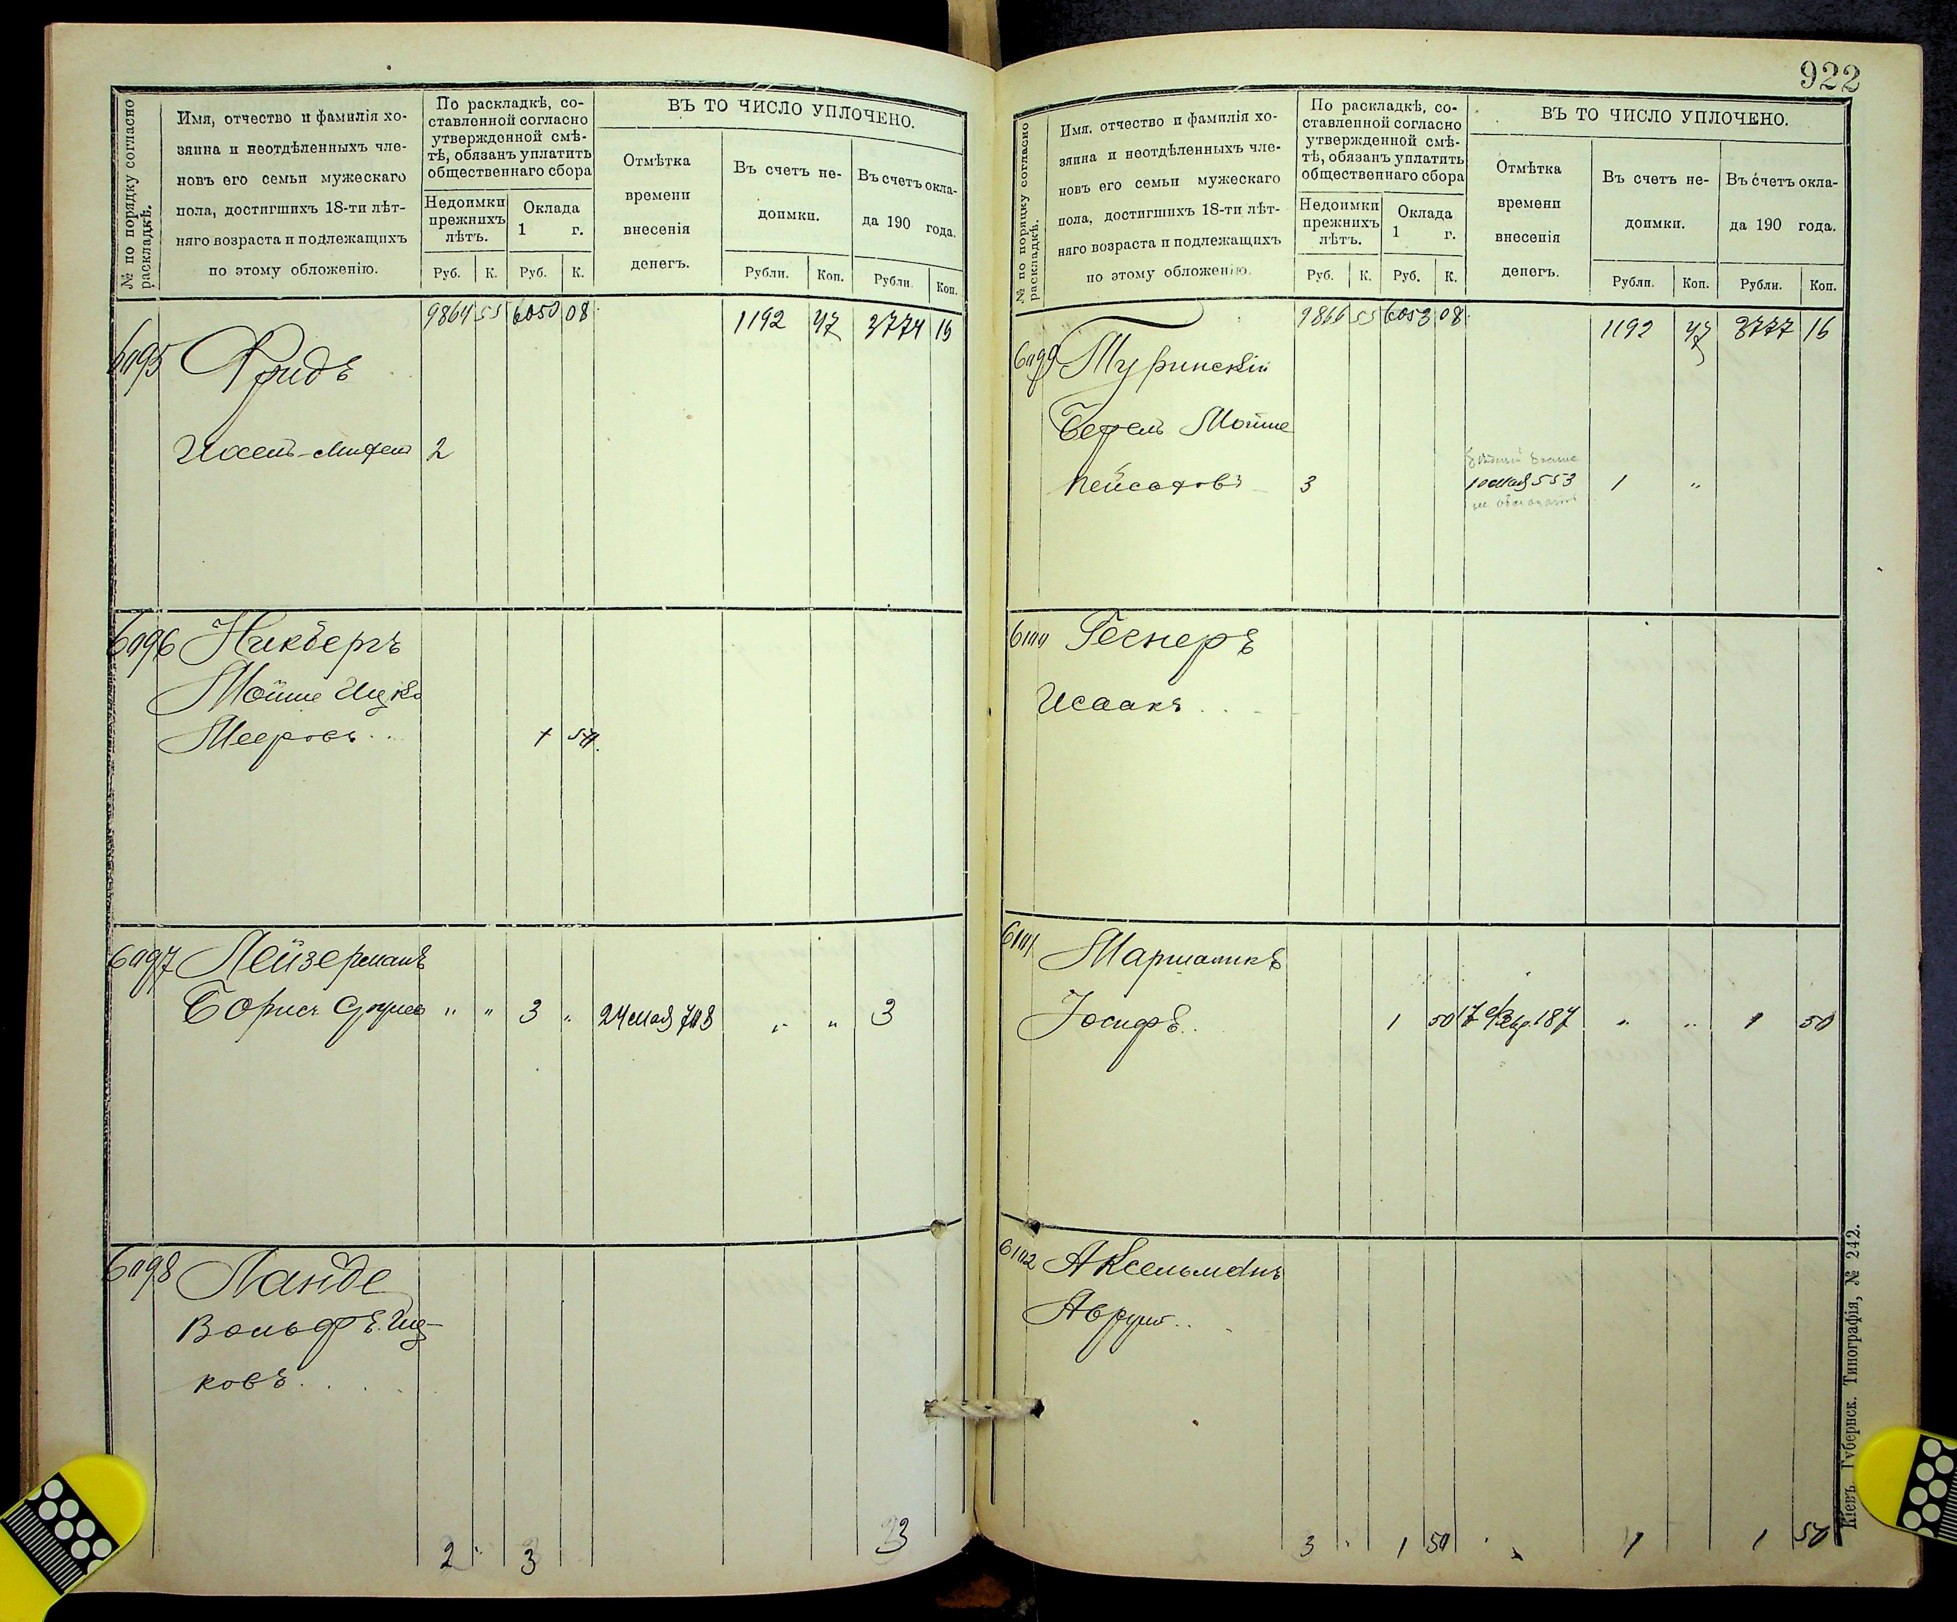 № по порядку согласно раскладкѣ.
Имя, отчество и фамилія хо-
зяина и неотдѣленныхъ чле-
новъ его семьи мужескаго
пола, достигшихъ 18-ти лѣт-
няго возраста и подлежащихъ
по этому обложенію.
По раскладкѣ, со-
ставленной согласно
утвержденной смѣ-
тѣ, обязанъ уплатить
общественнаго сбора
Недоимки
прежнихъ
лѣтъ.
Оклада
1 г.
Руб. К. Руб. К.
ВЪ ТО ЧИСЛО УПЛОЧЕНО.
Отмѣтка
времени
внесенія
денегъ.
Въ счетъ не-
доимки.
Рубли. Коп.
Въ счетъ окла-
да 190 года.
Рубли. Коп.
9864 55 6050 08 1192 47 3774 16
6095 Фридъ
2
6096 Никбергъ
Мойше Ицко
Мееровъ . . 1 50
6097 Лейзерманъ
Борисъ " " 3 " 24 мая 708 " " 3
6098 Ланде
Вольфъ Иц-
ковъ . . . .
2 " 3 3
922
№ по порядку согласно раскладкѣ.
Имя, отчество и фамилія хо-
зяина и неотдѣленныхъ чле-
новъ его семьи мужескаго
пола, достигшихъ 18-ти лѣт-
няго возраста и подлежащихъ
по этому обложенію.
По раскладкѣ, со-
ставленной согласно
утвержденной смѣ-
тѣ, обязанъ уплатить
общественнаго сбора
Недоимки
прежнихъ
лѣтъ.
Оклада
1 г.
Руб. К. Руб. К.
ВЪ ТО ЧИСЛО УПЛОЧЕНО.
Отмѣтка
времени
внесенія
денегъ.
Въ счетъ не-
доимки.
Рубли. Коп.
Въ счетъ окла-
да 190 года.
Рубли. Коп.
9866 55 6053 08 1192 47 3777 16
6099 Туринскій
Берель Мойше
Пейсаховъ 3 10 мая 553 1 "
6100 Геснеръ
Исаакъ . . -
6101 Маршаликъ
Іосифъ . . 1 50 17 187 " " 1 50
6102 Аксельманъ
Аврумъ . . -
3 " 1 50 1 1 50
Кіевъ. Губернск. Типографія, № 242.